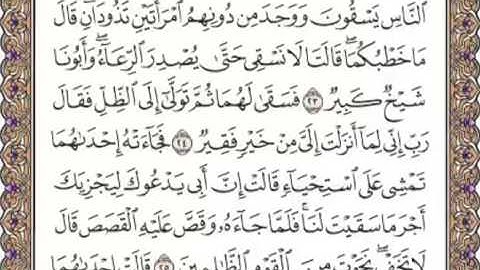 ٱلنَّاسِ يَسْقُونَ وَوَجَدَ مِن دُونِهِمُ ٱمْرَأَتَيْنِ تَذُودَانِ قَالَ
مَا خَطْبُكُمَا قَالَتَا لَا نَسْقِى حَتَّىٰ يُصْدِرَ ٱلرِّعَآءُ وَأَبُونَا
شَيْخٌ كَبِيرٌ ٢٣ فَسَقَىٰ لَهُمَا ثُمَّ تَوَلَّىٰٓ إِلَى ٱلظِّلِّ فَقَالَ
رَبِّ إِنِّى لِمَآ أَنزَلْتَ إِلَىَّ مِنْ خَيْرٍ فَقِيرٌ ٢٤ فَجَآءَتْهُ إِحْدَىٰهُمَا
تَمْشِى عَلَى ٱسْتِحْيَآءٍ قَالَتْ إِنَّ أَبِى يَدْعُوكَ لِيَجْزِيَكَ
أَجْرَ مَا سَقَيْتَ لَنَا فَلَمَّا جَآءَهُۥ وَقَصَّ عَلَيْهِ ٱلْقَصَصَ قَالَ
لَا تَخَفْ نَجَوْتَ مِنَ ٱلْقَوْمِ ٱلظَّٰلِمِينَ ٢٥ قَالَتْ إِحْدَىٰهُمَا